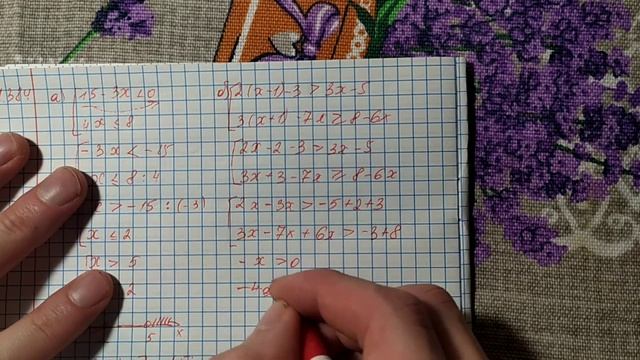 а) [15 - 3x < 0
[4x ≤ 8
[-3x < -15
x ≤ 8 : 4
x > -15 : (-3)
[x ≤ 2
[x > 5
2
5 x
б) [2(x-1)-3 > 3x-5
[3(x+1)-7x ≥ 8-6x
[2x-2-3 > 3x-5
[3x+3-7x ≥ 8-6x
[2x-3x > -5+2+3
3x-7x+6x > -3+8
-x > 0